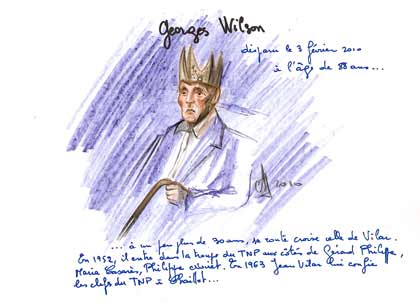 Georges Wilson
disparu le 3 février 2010
à l'âge de 88 ans...
2010
.... à un peu plus de 30 ans, sa route croise celle de Vilar.
En 1952, il entre dans la troupe du TNP aux côtés de Gérard Philippe,
Maria Casarès, Philippe Noiret. En 1963 Jean Vilar lui confie
les clefs du TNP à Chaillot...